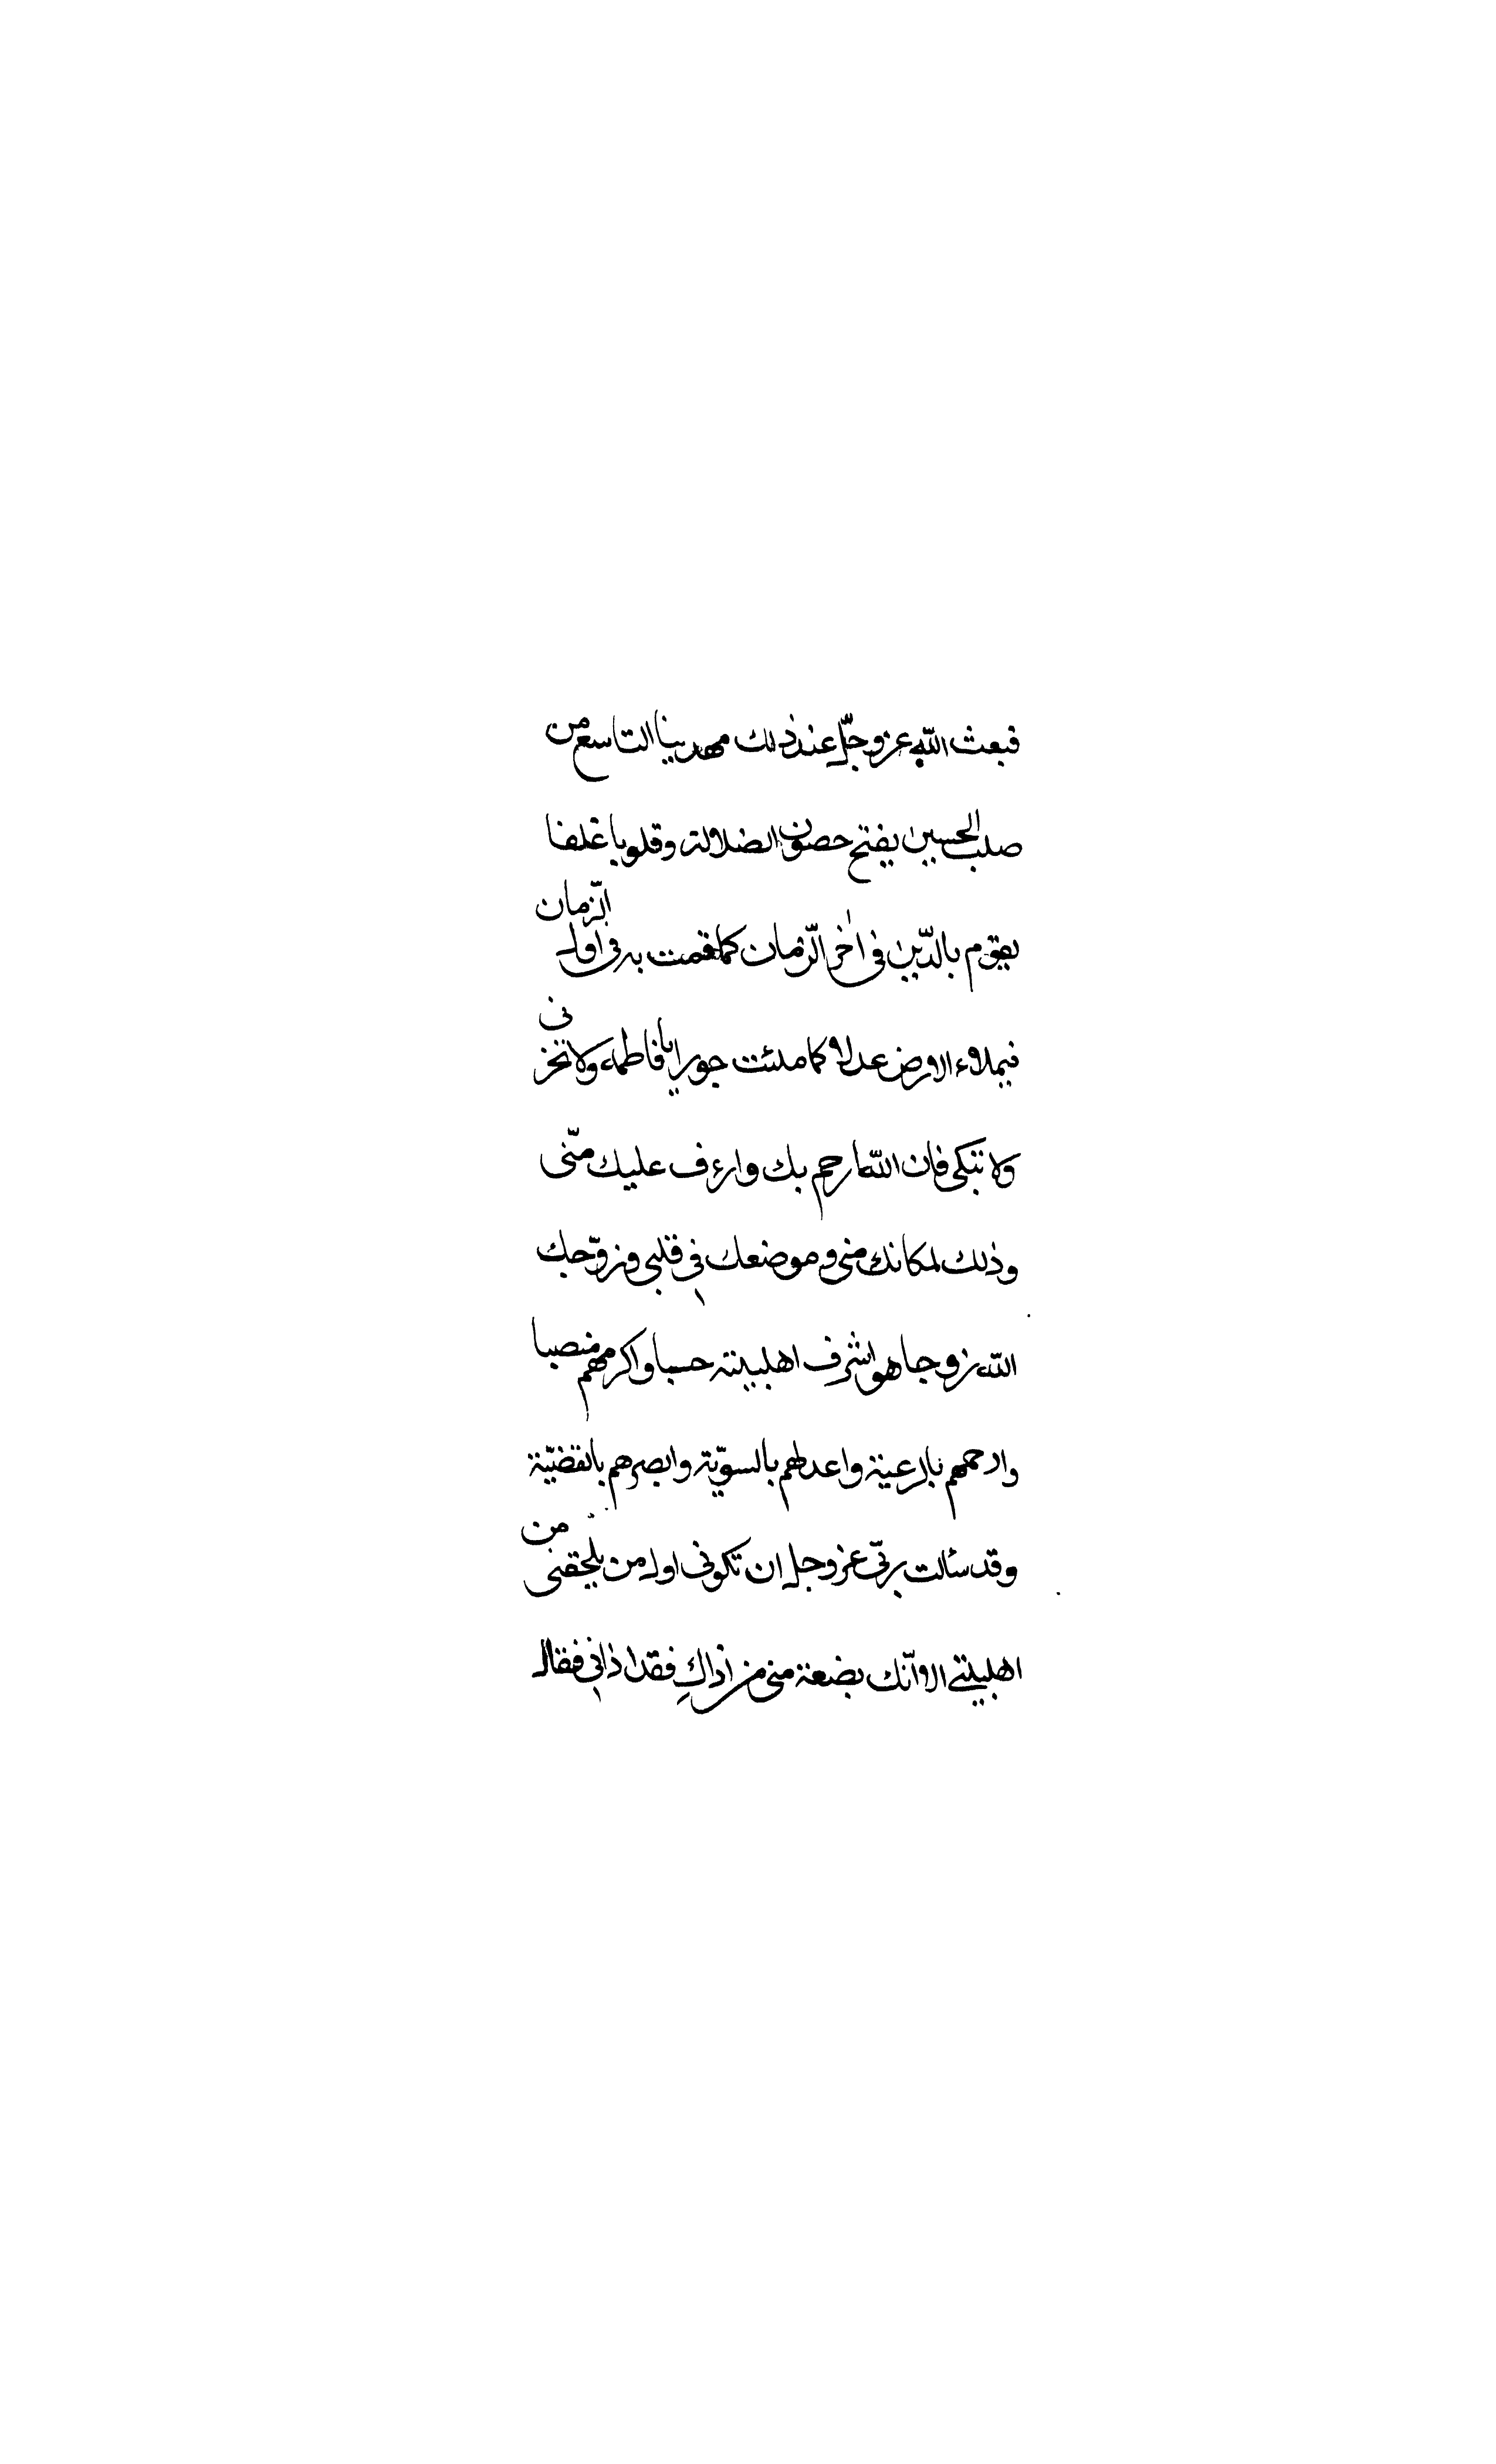 فبعث الله عز وجلّ عند ذلك مهدينا التاسع من
صلب الحسين يفتح حصون الضلالة وقلوبا غلفا
يقوم بالدّين فى اخر الزّمان كما قمت به فى اول الزّمان
فيملاء الارض عدلا كما ملئت جورا يا فاطمه ولا تحزنى
ولا تبكى فان الله ارحم بك وارءف عليك منّى
وذلك لمكانك منى وموضعك فى قلبى وزوّجك
الله زوجا هو اشرف اهلبيته حسبا واكرمهم منصبا
وارحمهم بالرعية واعدلهم بالسويّة وابصرهم بالقضيّة
وقد سئالت ربّى عز وجل ان تكونى اول من يلحقنى من
اهلبيتى الا وانّك بضعة منى من اذاكِ فقد اذانى فقال